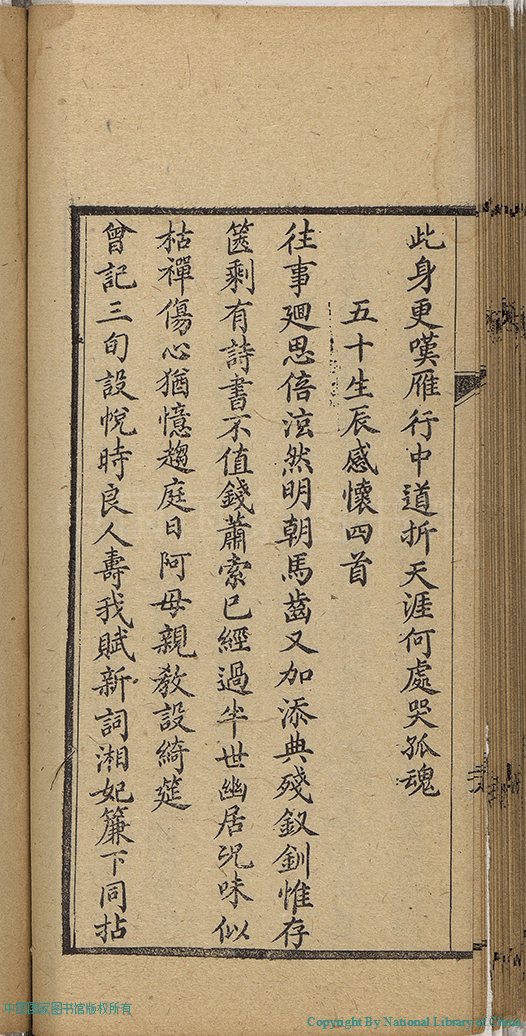 此身更嘆雁行中道折天涯何處哭孤魂
五十生辰感懷四首
往事廻思倍泫然明朝馬齒又加添典殘釵釧惟存
篋剩有詩書不值錢蕭索已經過半世幽居況味似
枯禪傷心猶憶趨庭日阿母親教設綺筵
曾記三旬設帨時良人壽我賦新詞湘妃簾下同拈
中國國家图书馆版权所有
Copyright By National Library of China